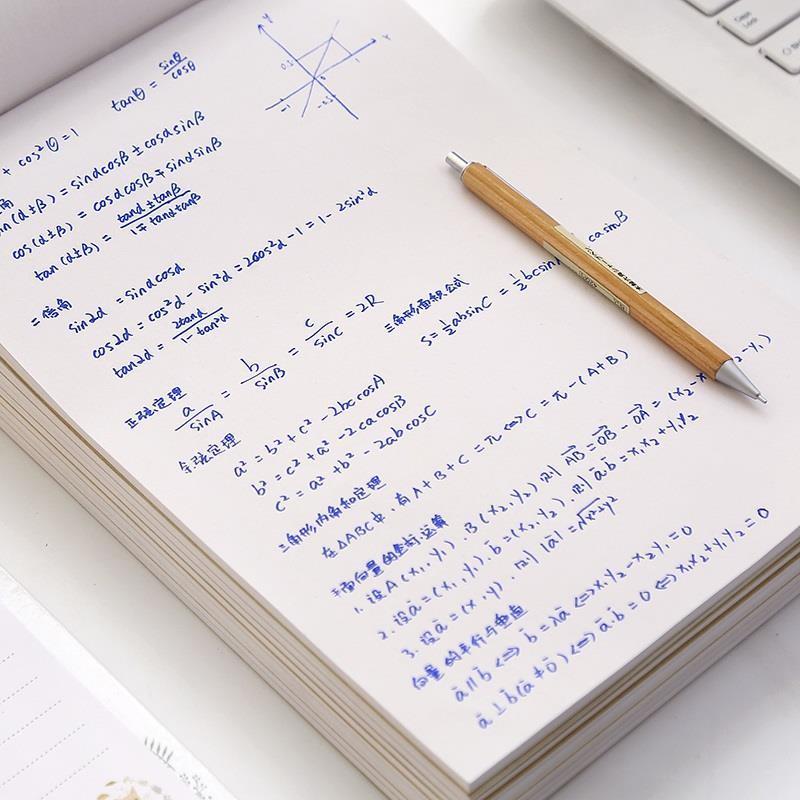 tanθ = sinθ/cosθ
y
x
0.5
1
0
-1
-0.5
+ cos²θ = 1
sin(α±β) = sinαcosβ ± cosαsinβ
cos(α±β) = cosαcosβ ∓ sinαsinβ
tan(α±β) = tanα±tanβ/1∓tanαtanβ
二倍角
sin2α = sinαcosα
cos2α = cos²α - sin²α = 2cos²α - 1 = 1 - 2sin²α
tan2α = 2tanα/1-tan²α
正弦定理
a/sinA = b/sinB = c/sinC = 2R
三角形面积公式
S = ½absinC = ½bcsin casinB
余弦定理
a² = b² + c² - 2bccosA
b² = c² + a² - 2cacosB
c² = a² + b² - 2abcosC
三角形内角和定理
在△ABC中,有A+B+C=π⇔C=π-(A+B)
平面向量的坐标运算
1. 设A(x₁,y₁),B(x₂,y₂),则AB=OB-OA=(x₂-x -y₁)
2. 设a=(x₁,y₁),b=(x₂,y₂),则a·b=x₁x₂+y₁y₂
3. 设a=(x,y),则|a|=√x²+y²
向量的平行与垂直
a∥b⇔b=λa⇔x₁y₂-x₂y₁=0
a⊥b(a≠0)⇔a·b=0⇔x₁x₂+y₁y₂=0